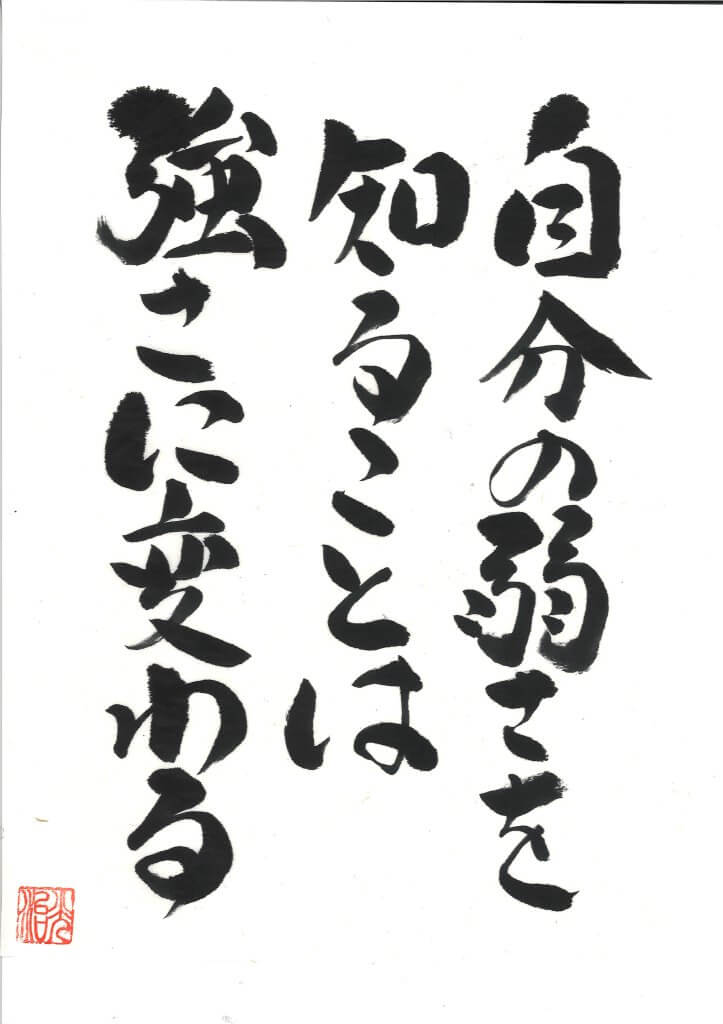 自分の弱さを
知ることは
強さに変わる